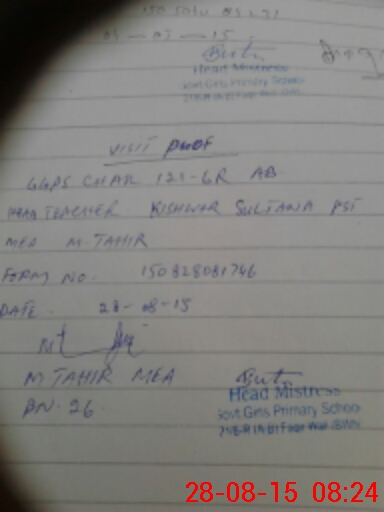 03-15
Head Mistress
Govt Girls Primary School
VISIT PROOF
GGPS CHAK 121-6R AB
HEAD TEACHER KISHWAR SULTANA PST
MEA M.TAHIR
FORM NO. 150828081746
DATE. 28-08-15
M TAHIR MEA
BN-26.
Head Mistress
Govt Girls Primary School
28-08-15 08:24